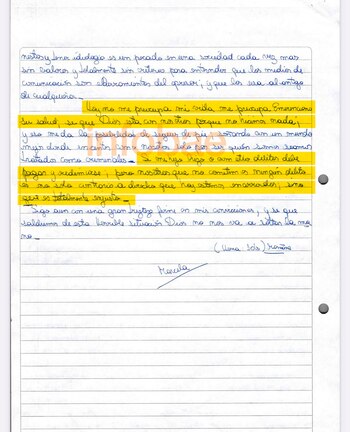 nestos y tener ideología es un pecado en una sociedad cada vez mas
sin valores y totalmente sin criterio para entender que los medios de
comunicación son el
y que les usa al antojo
de cualquiera.
Hoy no me preocupa mi vida, me preocupa
su salud, se que Dios esta con nosotros porque no hicimos nada,
y eso me da la posibilidad de seguir de pie soñando con un mundo
mejor donde
nosotros solo por ser quien somos seamos
tratados como criminales. Si mi hijo hizo o cometio delitos debe
pagar y redimirse, pero nosotros que no cometimos ningun delito
es no solo contrario a derecho que hoy estemos encerrados, sino
que es totalmente injusto.
Sigo aun con una gran
firme en mis convicciones, y se que
saldremos de esta terrible situación Dios no nos va a soltar la ma
no.
(Una sola)